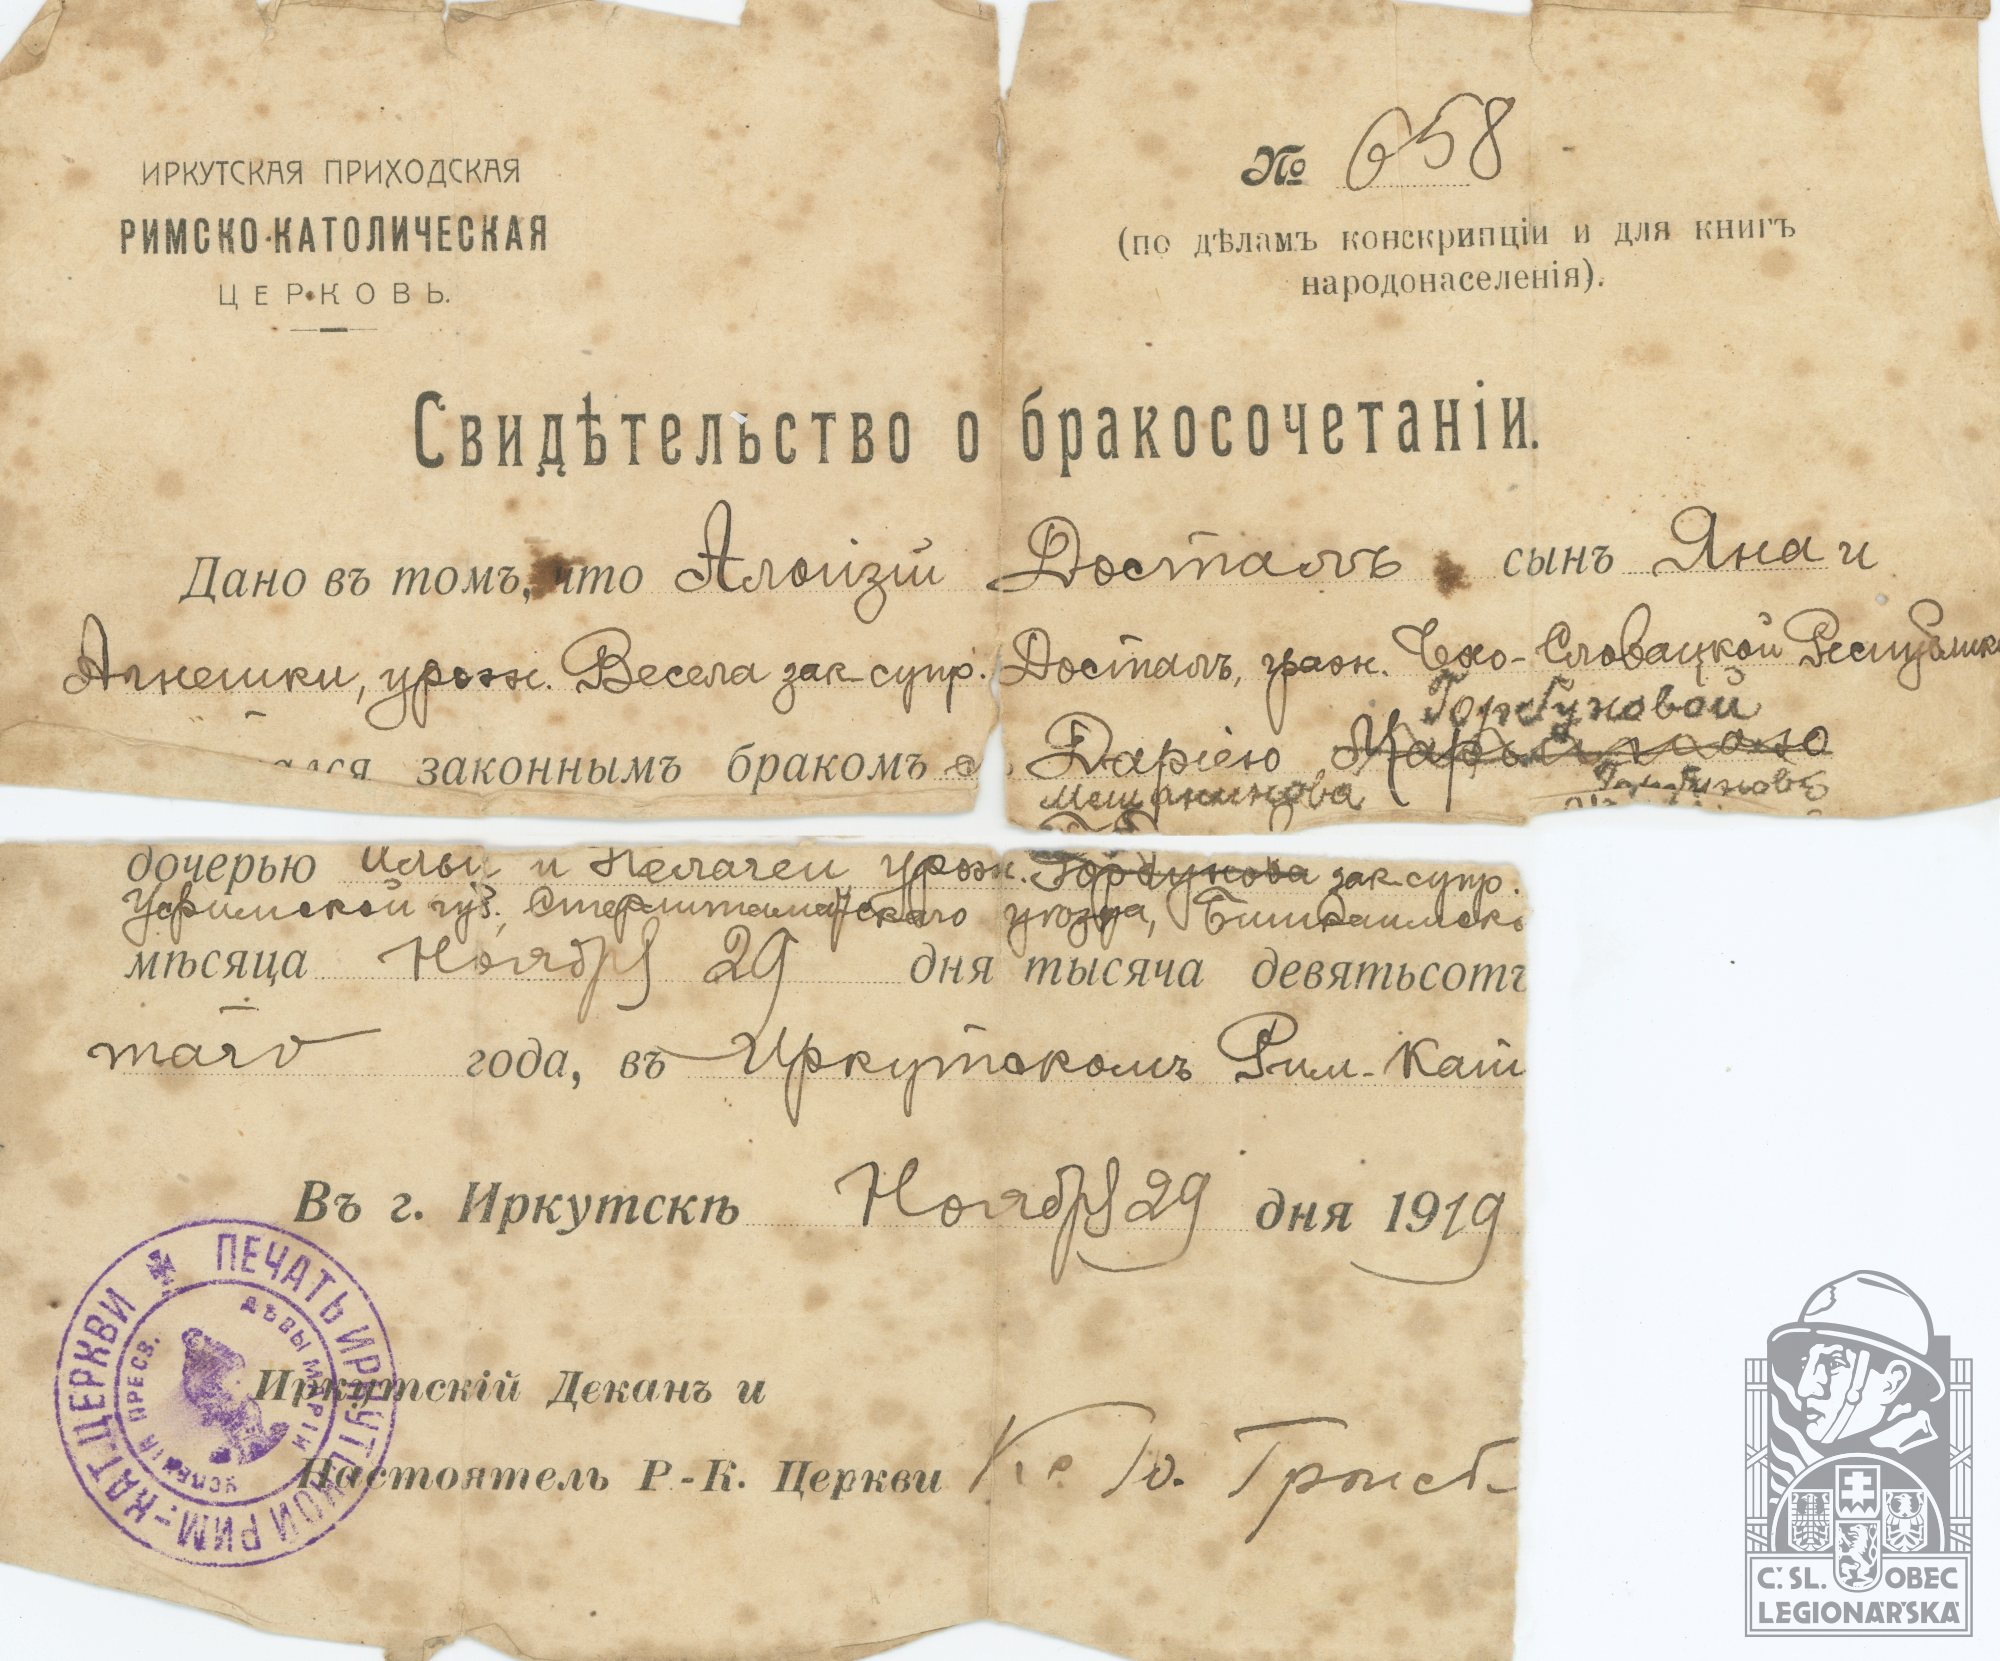 ИРКУТСКАЯ ПРИХОДСКАЯ
РИМСКО-КАТОЛИЧЕСКАЯ
ЦЕРКОВЬ.
№ 658
(по дѣламъ конскрипціи и для книгъ
народонаселенія).
Свидѣтельство о бракосочетаніи.
Дано въ томъ, что Алоизій Досталъ сынъ Яна и
Агнешки, урожн. Весела зак-супр. Досталъ, граж. Чехо-Словацкой Республики
Горбуновой
законнымъ бракомъ съ Даріею
Мещанинова Горбуновъ
дочерью Ильи и Пелагеи урожн. Горбунова зак-супр.
Уфимской губ., Стерлитамакскаго уюзда,
мѣсяца Ноября 29 дня тысяча девятьсотъ
таго года, въ Иркутскомъ Рим-Кат
Въ г. Иркутскѣ Ноября 29 дня 1919
Иркутскій Деканъ и
Настоятель Р-К. Церкви
ПЕЧАТЬ ИРКУТСКОЙ РИМ-КАТ. ЦЕРКВИ
УСПЕНІЯ ПРЕСВ. ДѢВЫ МАРІИ
Č.SL. OBEC
LEGIONÁŘSKÁ